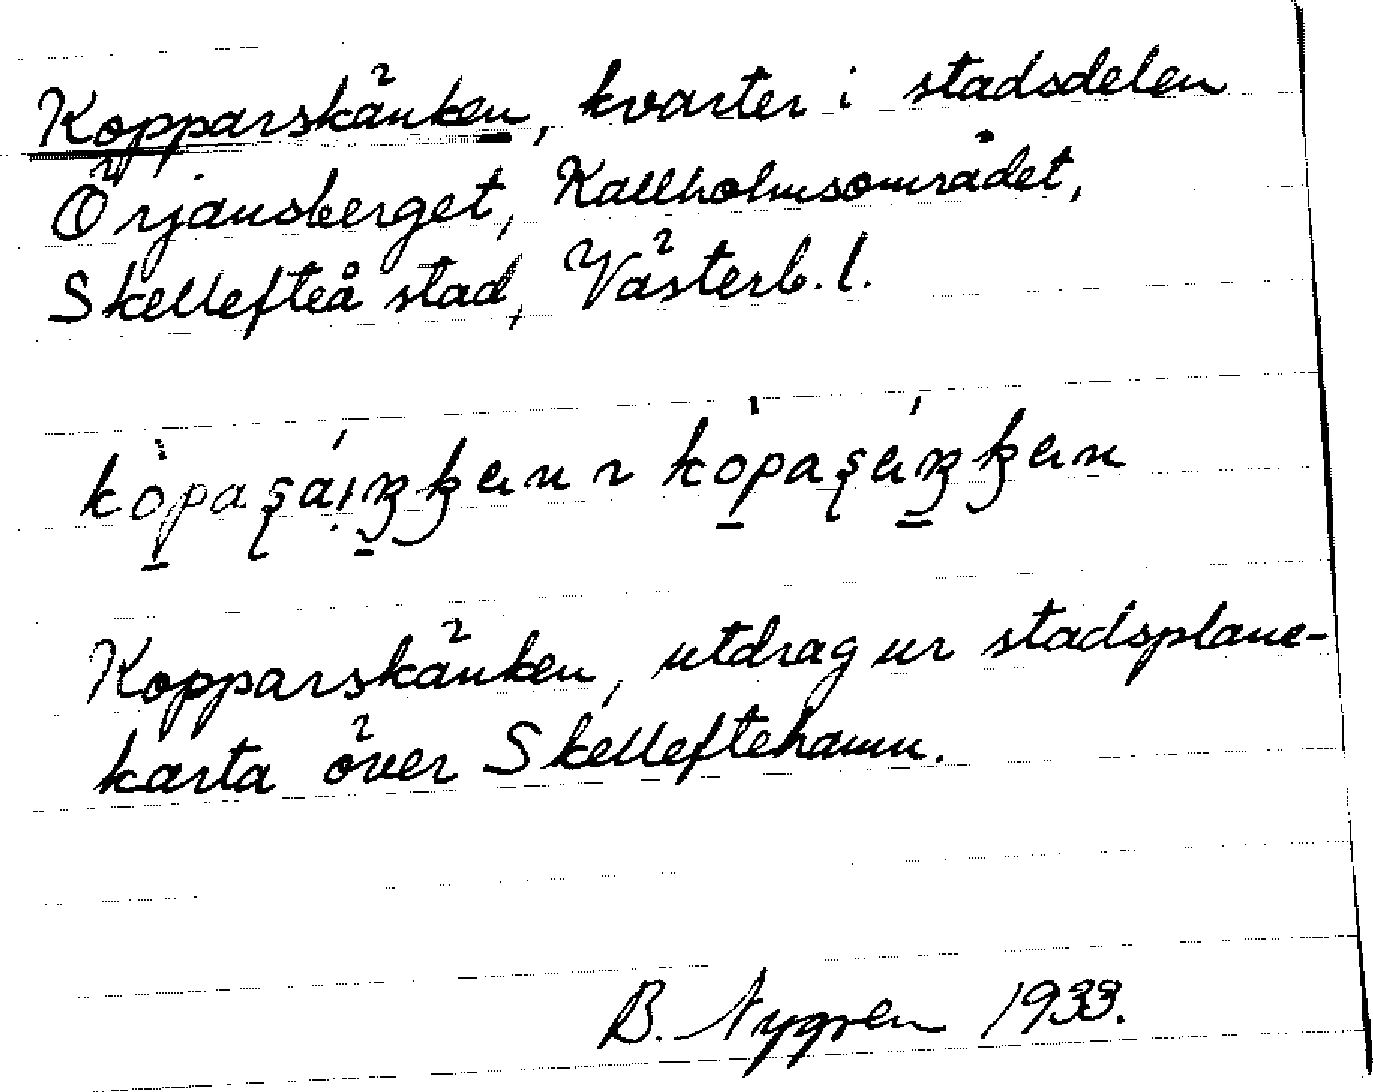 Kopparskänken, kvarter i stadsdelen
Örjansberget, Kallholmsområdet,
Skellefteå stad, Västerb. l.
Kopparskänken, utdrag ur stadsplane-
karta över Skelleftehamn.
B. Nygren 1933.